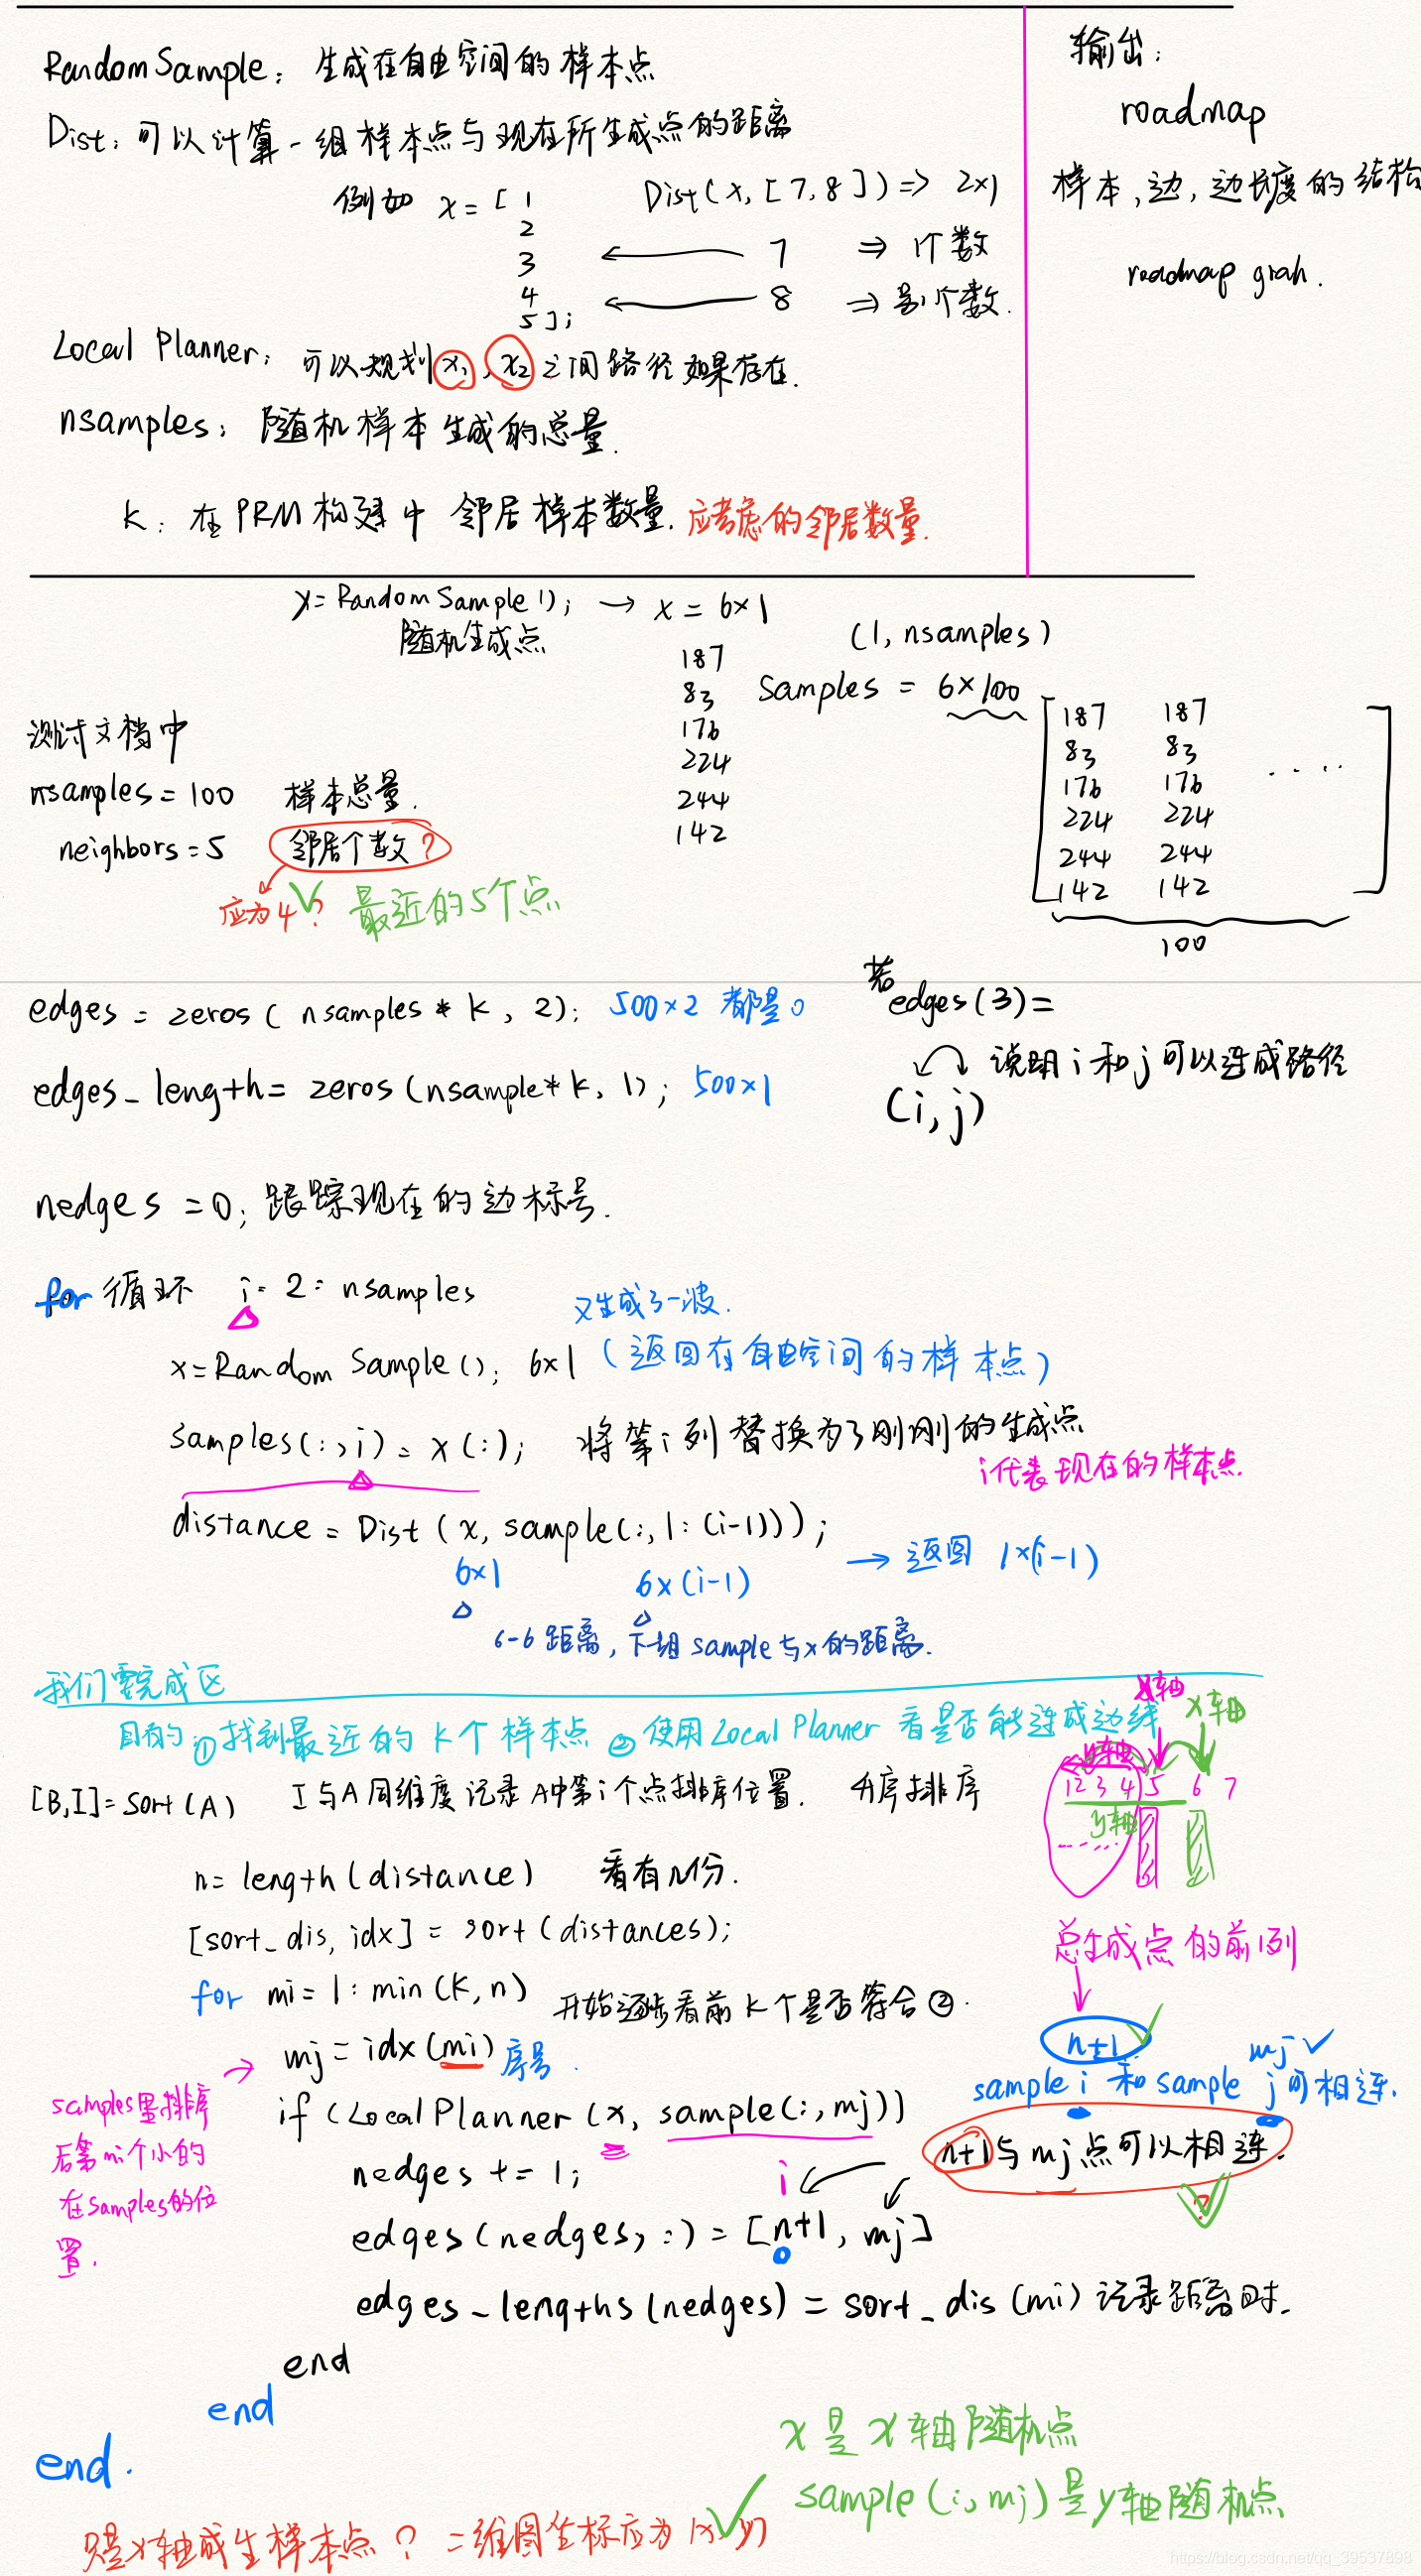 RandomSample: 生成在自由空间的样本点
Dist: 可以计算一组样本点与现在所生成点的距离
例如 x = [ 1
2
3
4
5 ];
Dist(x, [7, 8]) => 2x1
7 => 1个数
8 => 另1个数.
Local Planner: 可以规划x₁, x₂之间路径如果存在.
nsamples: 随机样本生成的总量.
K: 在PRM构建中 邻居样本数量. 应考虑的邻居数量.
输出:
roadmap
样本, 边, 边长度的结构
roadmap grah.
x=RandomSample(); → x = 6x1
随机生成点
187
83
176
224
244
142
(1, nsamples)
Samples = 6x100
187 187
83 83
176 176 ....
224 224
244 244
142 142
100
测试文档中
nsamples = 100 样本总量.
neighbors = 5 邻居个数?
应为4? 最近的5个点
edges = zeros( nsamples * K, 2); 500x2 都是0
edges_length= zeros(nsample*K, 1); 500x1
若edges(3)=
(i,j)
说明i和j可以连成路径
nedges =0; 跟踪现在的边标号.
for 循环 i=2:nsamples
又生成了一波.
x=Random Sample(); 6x1 (返回在自由空间的样本点)
samples(:,i) = x(:); 将第i列替换为了刚刚的生成点
i代表现在的样本点.
distance = Dist (x, sample(:,1:(i-1)));
6x1 6x(i-1) → 返回 1x(i-1)
6-6距离, 下一组sample与x的距离.
我们需完成区
目的 ①找到最近的K个样本点 ②使用Local Planner 看是否能连成边线
[B,I]=Sort(A) I与A同维度记录A中第i个点排序位置. 升序排序
y轴 x轴
y轴
1 2 3 4 5 6 7
y轴
总生成点的前i列
n= length(distance) 看有n份.
[sort_dis, idx] = sort(distances);
for mi=1:min(K,n) 开始逐步看前K个是否符合②.
mj = idx(mi) 序号.
samples里排序
后第mi个小的
在samples的位
置.
if (LocalPlanner(x, sample(:,mj))
n+1 mj
sample i 和 sample j 可相连.
n+1与mj点可以相连.
?
nedges += 1;
i
edges(nedges, :) = [n+1, mj]
edges_lengths(nedges) = sort_dis(mi) 记录距离时.
end
end
end.
x是x轴随机点
sample(:,mj)是y轴随机点
只是x轴成生样本点? 二维图坐标应为(x, y)
https://blog.csdn.net/qq_39537898